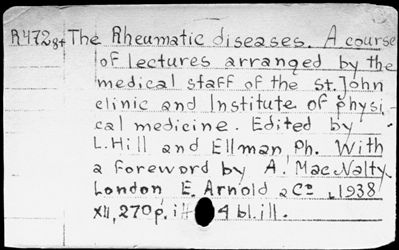 R472g+ The Rheumatic diseases. A course
of lectures arranged by the
medical staff of the St. John
clinic and Institute of physi
cal medicine. Edited by
L. Hill and Ellman Ph. With
a foreword by A. Mac Nalty
London E. Arnold & Co 1938
XII, 270p. ill 4 bl. ill.